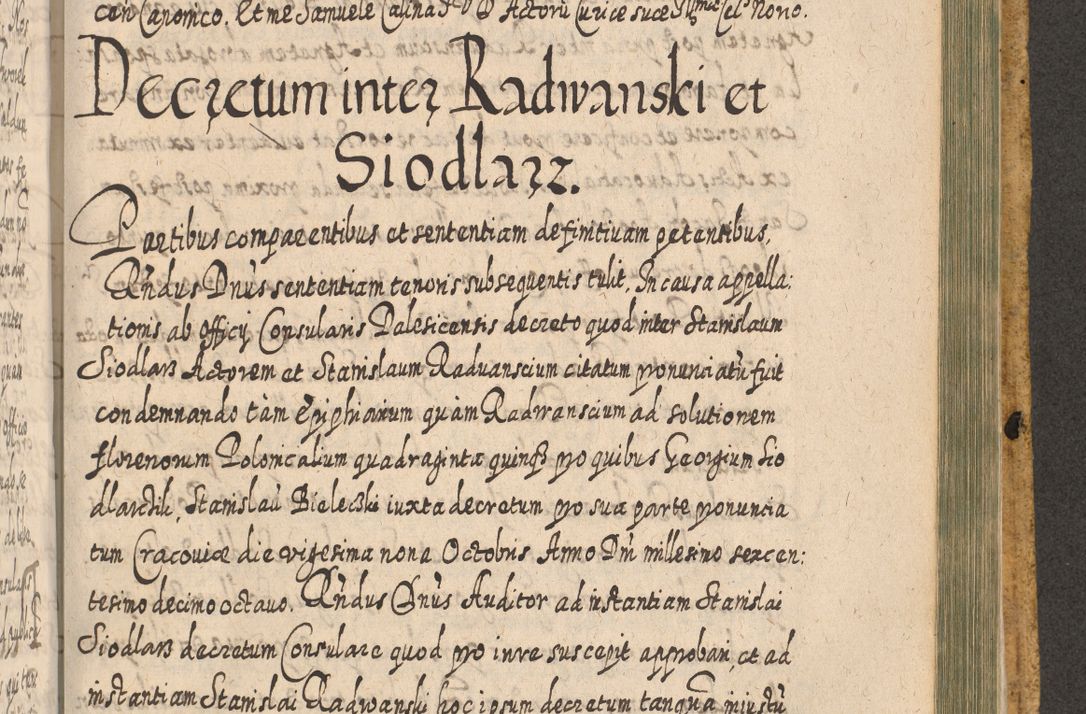 can Canonico. Et me Samuele Calina
Decretum inter Radwanski et
Siodlarz.
Partibus comparentibus et sententiam definitivam petentibus,
Rñdus Dñus sententiam tenoris subsequentis tulit. In causa appella:
tionis ab officij Consularis Dalesicensis decreto quod inter Stanislaum
Siodlarz Actorem et Stanislaum Raduanscium citatum pronunciatũ fuit
condemnando tam Epiphanium quàm Radwanscium ad solutionem
florenorum Polonicalium quadraginta quinqȝ pro quibus Georgium Sio
dlarchik, Stanislaũ Bieleczki iuxta decretum pro sua parte pronuncia
tum Cracoviæ die vigesima nona Octobris Anno Dñi millesimo sexcen:
tesimo decimo octauo. Rñdus Dñus Auditor ad instantiam Stanislai
Siodlarz decretum Consulare quod pro iure suscepit approbari, et ad
instantiam Stanislai Radwanski hoc ipsum decretum tanquã iniustũ